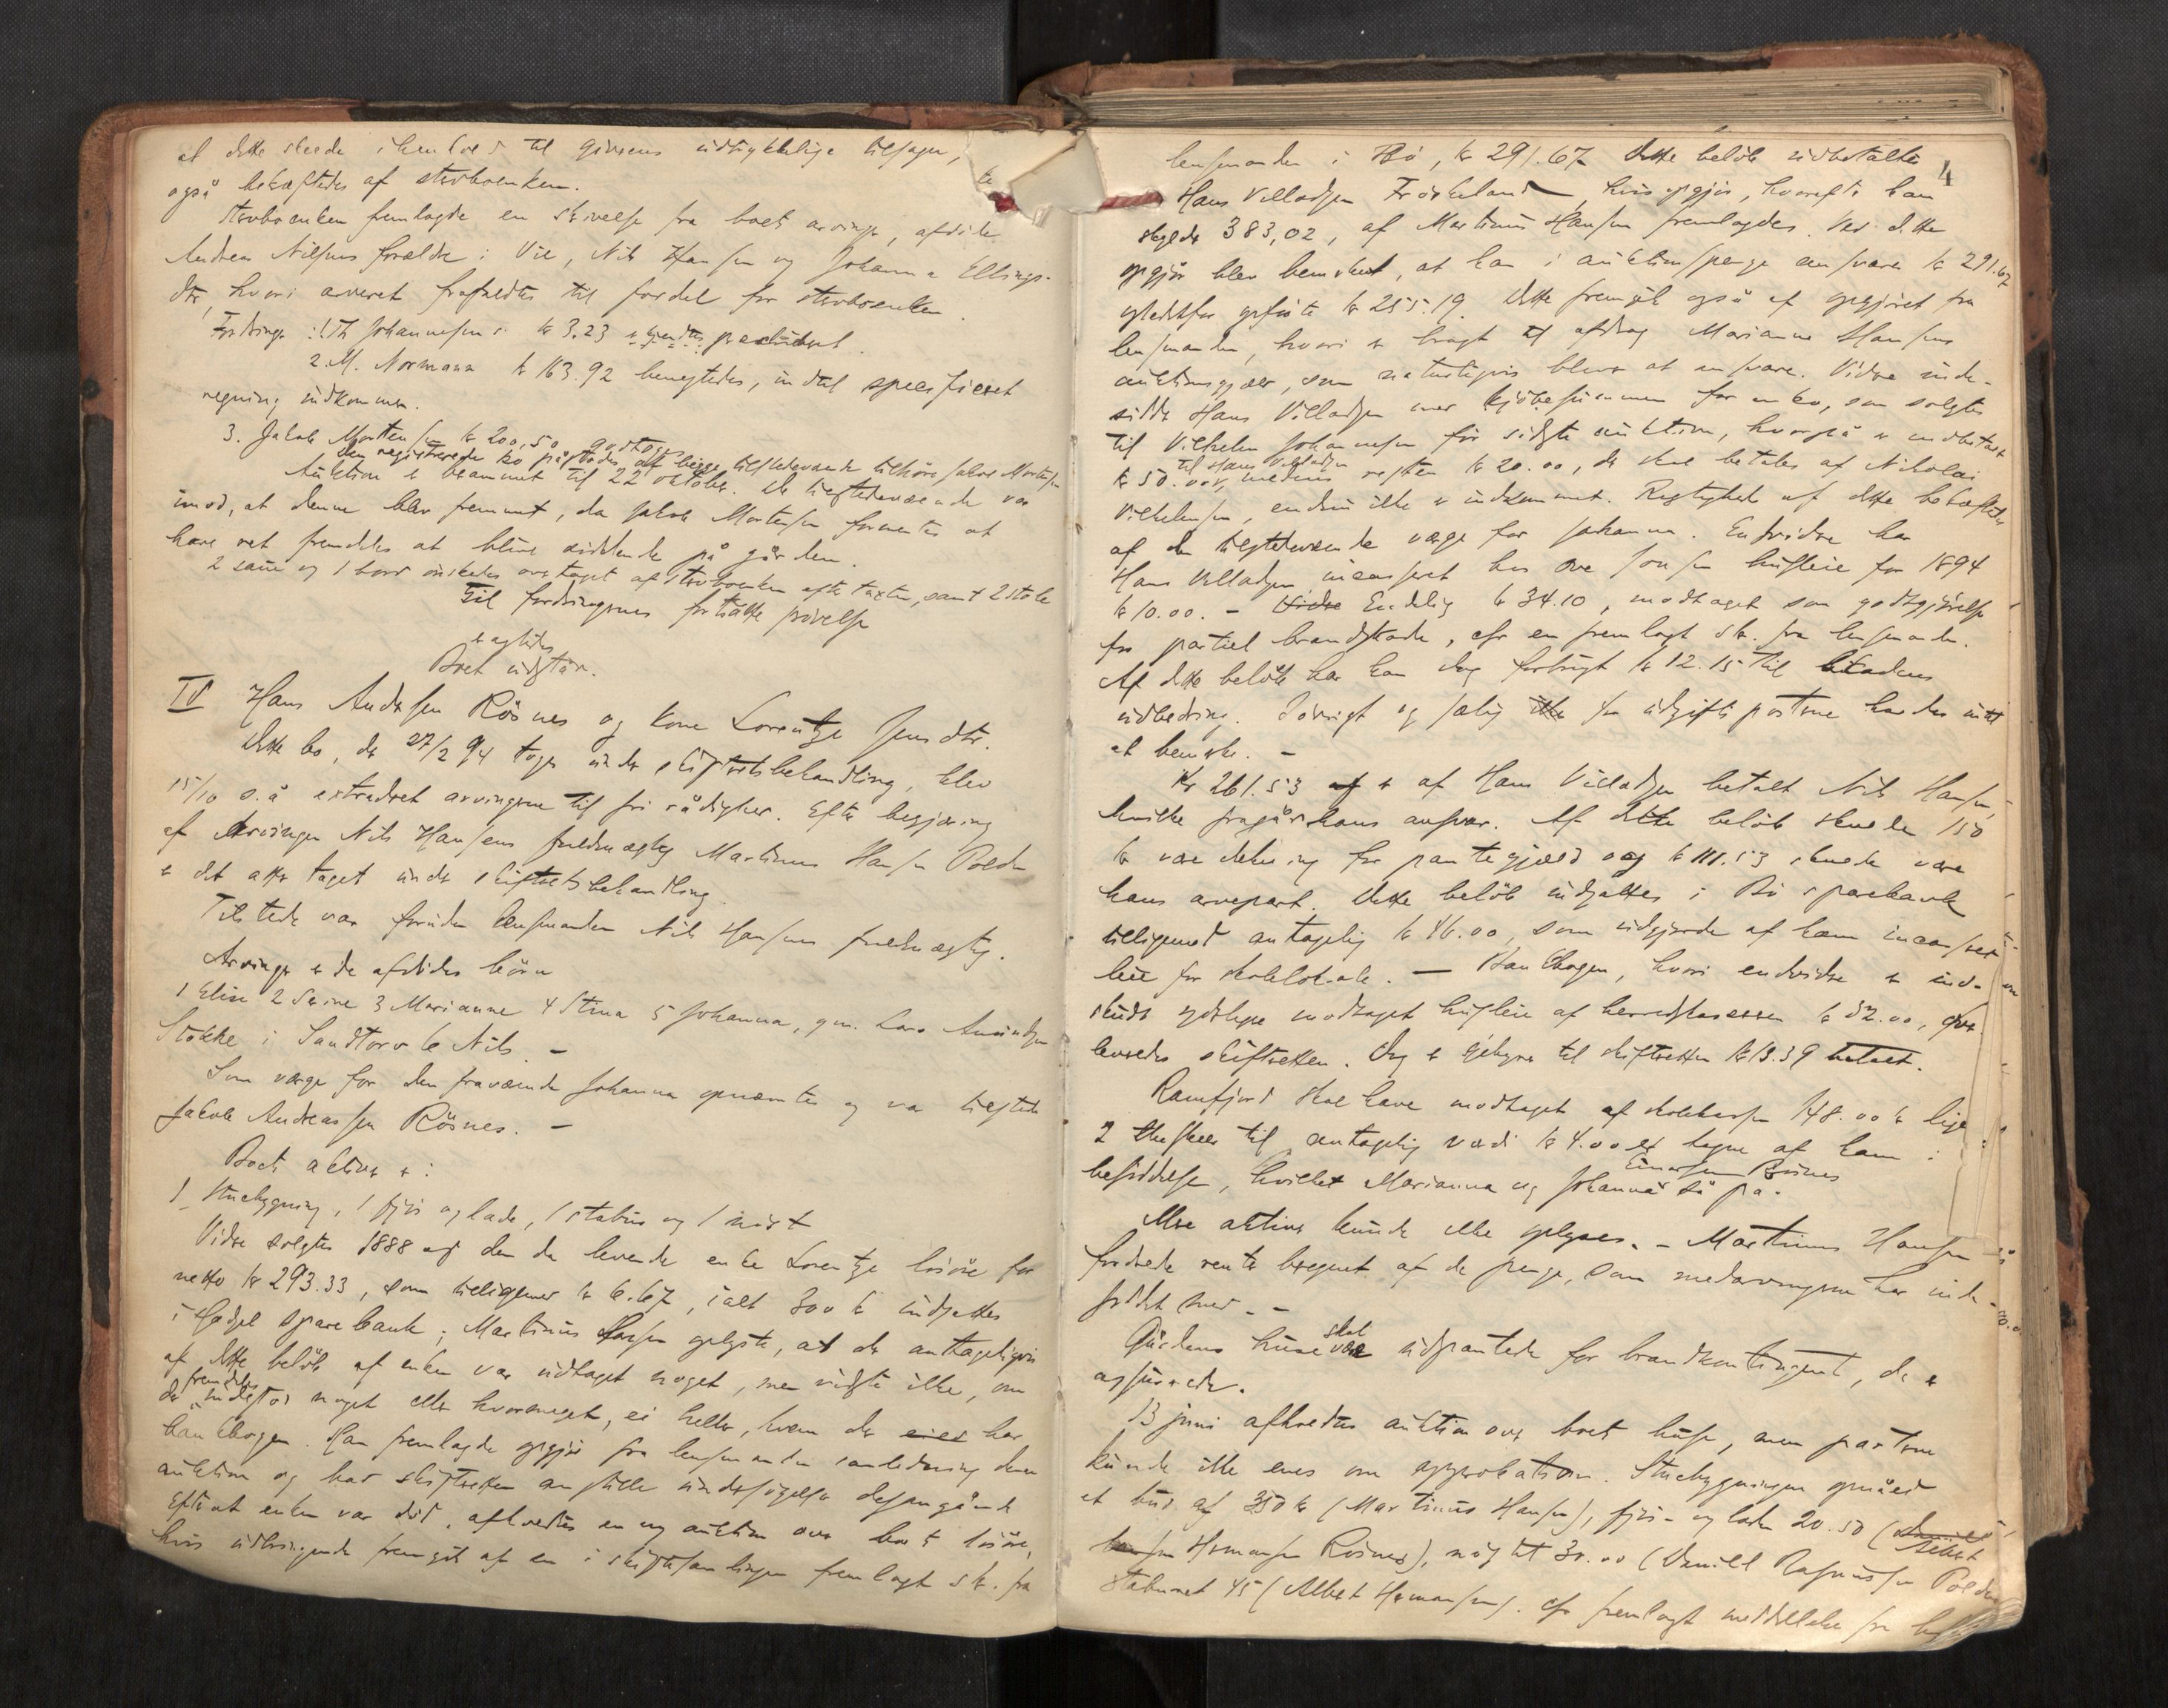 at dette skede i henhold til giverens udtrykkelige tilsagn,
også bekræftedes af stervboenken.
Stervboenken fremlagde en skrivelse fra boets arvinge, afdøde
Andreas Nilsens forældre i Vie, Nils Hansen og Johanna Ellings-
dtr, hvori arveret frafaldtes til fordel for stervboenken.
Fordringer: 1. Th Johannesens kr 3.23 præcluderet.
2. M. Normann kr 163.92 benegtedes, indtil specificeret
regning indkommer.
3. Jakob Mortensen kr 200,50 godtoges
den registrerede ko påstodes af begge tilstedeværende tilhøre Jakob Mortensen
Auktion er berammet til 22 october. De tilstedeværende var
imod, at denne blev fremmet, da Jakob Mortensen formentes at
have ret fremdeles at blive siddende på gården.
2 sauer og 1 bord ønskedes overtaget af stervboenken efter taxten, samt 2 stole
Til fordringernes fortsatte prøvelse
Boet udstår.
IV Hans Andersen Rösnes og kone Lorentze Jensdtr.
Dette bo, der 27/2 94 toges under skifteretsbehandling, blev
15/10 s.å extraderet arvingerne til fri rådighed. Efter begjæring
af Arvingen Nils Hansens fuldmægtig Martinus Hansen
er det atter taget under skifteretsbehandling.
Tilstede var foruden lensmanden Nils Hansens fuldmægtig.
Arvinger er de afdødes börn
1 Elise 2 Serine 3 Marianne 4 Stina 5 Johanna, gm. Lars Amundsen
Stokke i Sandtorv 6 Nils. -
Som værge for den fraværende Johanna opnævntes og var tilstede
Jakob Andreassen Rösnes. -
Boets aktiva er:
1 Stuebygning, 1 fjös og lade, 1 stabur og 1 nöst
Videre solgtes 1888 af den da levende enke Lorentze lösöre for
netto kr 293.33, som tilligemed kr 6.67, ialt 300 kr indsattes
i Hadsel sparebank; Martinus Hansen oplyste, at der antageligvis
af dette belöb af enken var udtaget noget, men vidste ikke, om
der fremdeles indestår noget eller hvormeget, ei heller, hvem der eier har
bankbogen. Han fremlagde opgjör fra lensmanden i anledning denne
auktion og bad skifteretten anstille undersögelse desangående
Efterat enken var död, afholdtes en ny auktion over boets lösöre,
hvis udbringende fremgik af en i skiftesamlingen fremlagt skr. fra
4
lensmanden i Bö, kr 291.67 Dette belöb udbetaltes
Hans Villadsen Fröskeland, hvis opgjör, hvorefter han
skylder 383,02, af Martinus Hansen fremlagdes. Ved dette
opgjör blev bemærket, at han i auktionspenge ansvarer kr 291.67
istedetfor opførte kr 255.19. Dette fremgik også af opgjöret fra
lensmanden, hvori er bragt til afdrag Marianne Hansens
auktionsgjæld, som naturligvis bliver at ansvare. Videre inde-
sidder Hans Villadsen med kjöbesummen for en ko, som solgtes
til Vilhelm Johannesen för sidste auktion, hvorpå er indbetalt
kr 50.00 til Hans Villadsen, medens resten kr 20.00, der skal betales af Nikolai
Vilhelmsen, endnu ikke er indkommet. Rigtighed af dette bekræftedes
af den tilstedeværende værge for Johanna. Endvidere har
Hans Villadsen incasseret hos Ove Jonsen husleie for 1894
kr 10.00. - Videre Endelig kr 34.10, modtaget som godtgjörelse
for partiel brandskade, cfr en fremlagt skr. fra lensmanden.
Af dette belöb har han dog forbrugt kr 12.15 til skadens
udbedring. Iövrigt og særlig ikke for udgiftsposterne havdes intet
at bemærke. -
Kr 261.53 af er af Hans Villadsen betalt Nils Hansen,
hvilke fragår hans ansvar. Af dette belöb skulde 150
kr være dekning for pantegjæld og kr 111.53 skulde være
hans arvepart. Dette belöb indsattes i Bö sparebank
tilligemed antagelig kr 46.00, som udgjorde af ham incasseret
leie for skolelokale. - Bankbogen, hvori endvidere er ind-
skudt yderligere modtaget husleie af herredskassen kr 32.00, over-
leveredes skifteretten. Dog er gebyrer til skifteretten kr 13.39 betalt.
Ramfjord skal have modtaget af skolekassen 148.00 kr lige
2 theskeer til antagelig værdi kr 4.00 er tagne af ham i
besiddelse, hvilket Marianna og Johanna Einarsen Rösnes så på.
Mere aktiva kunde ikke oplyses. - Martinus Hansen
fordrede renter beregnet af de penge, som medarvingerne har inde-
siddet med. -
Gårdens huse skal være udpantede for brandkontingent, da er
assurerede.
13 juni afholdtes auktion over boets huse, men parterne
kunde ikke enes om approbation. Stuebygningen opnåede
et bud af 350 kr (Martinus Hansen), fjös- og laden 20.50 (
Hermansen Rösnes), nöstet 30.00 (Daniel Rasmussen
Staburet 45 (Albert Hermansen). cfr fremlagt meddelelse fra